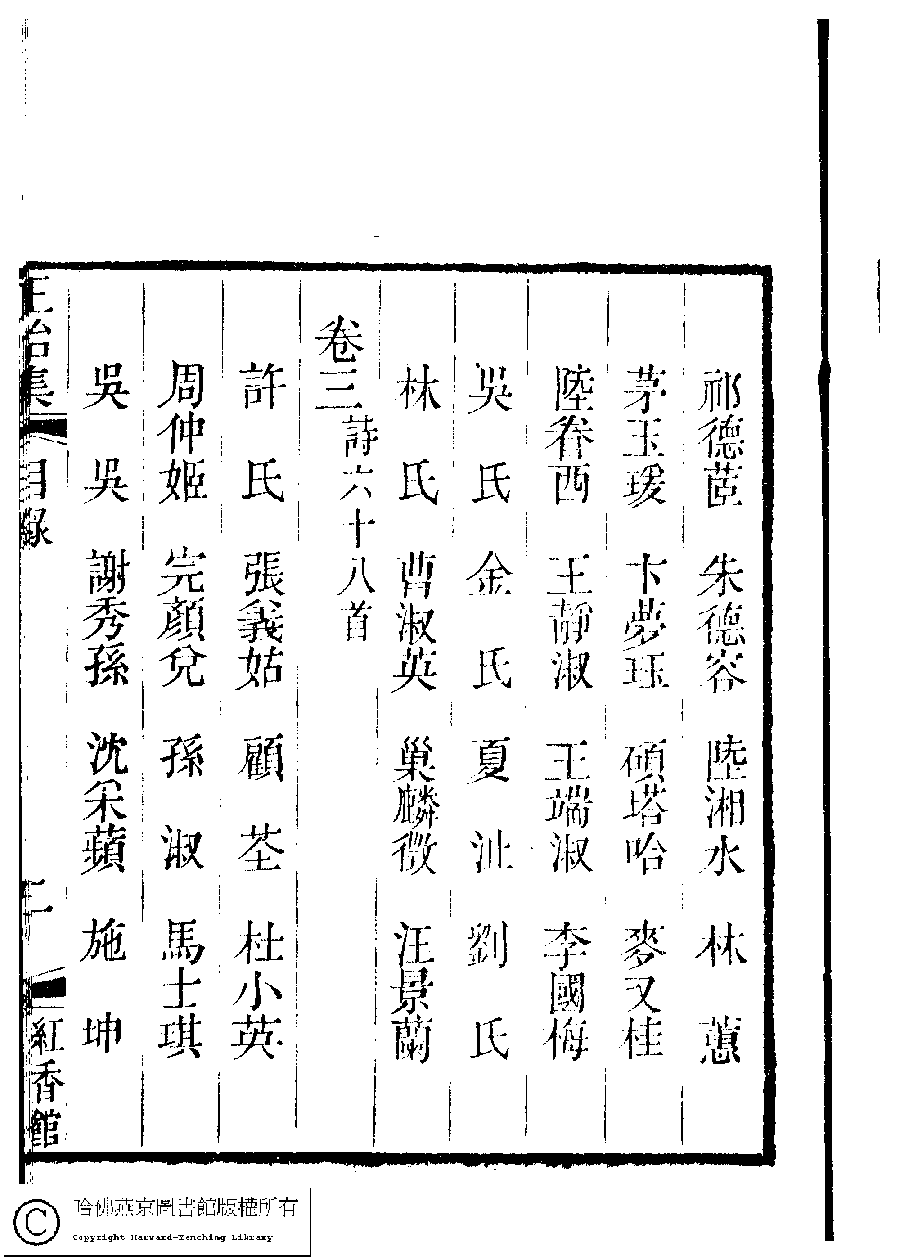 祁德茝　朱德容　陸湘水　林蕙
茅玉瑗　卞夢珏　碩塔哈　麥又桂
陸眷西　王靜淑　王端淑　李國梅
吳氏　金氏　夏沚　劉氏
林氏　曹淑英　巢麟徵　汪景蘭
卷三 詩六十八首
許氏　張義姑　顧荃　杜小英
周仲姬　完顏兌　孫淑　馬士琪
吳吳　謝秀孫　沈采蘋　施坤
正始集　目錄　二　紅香館
哈佛燕京圖書館版權所有
Copyright Harvard-Yenching Library